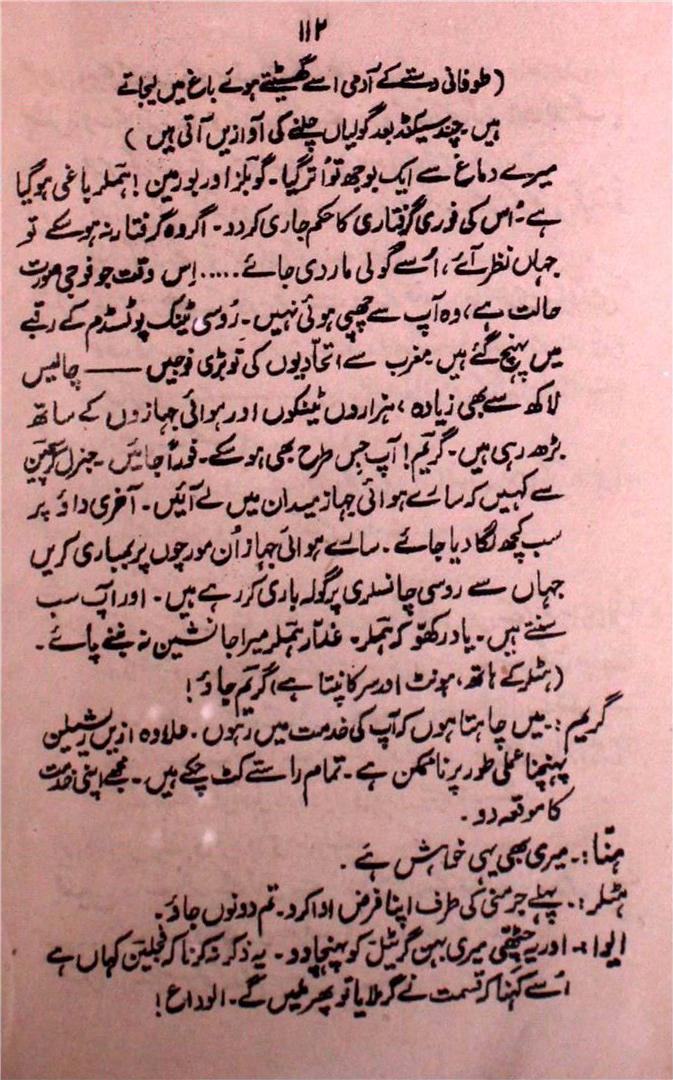 ۱۱۲
(طوفانی دستے کے آدمی اسے گھسیٹتے ہوئے باغ میں لیجاتے
ہیں۔ چند سیکنڈ بعد گولیاں چلنے کی آوازیں آتی ہیں)
میرے دماغ سے ایک بوجھ تو اُتر گیا۔ گوبلز اور بورمین! ہملر باغی ہو گیا
ہے۔ اُس کی فوری گرفتاری کا حکم جاری کر دو۔ اگر وہ گرفتار نہ ہو سکے تو
جہاں نظر آئے، اُسے گولی مار دی جائے ..... اِس وقت جو فوجی صورت
حالت ہے، وہ آپ سے چھپی ہوئی نہیں۔ رُوسی ٹینک پوٹسڈم کے رقبے
میں پہنچ گئے ہیں۔ مغرب سے اتحادیوں کی تو بڑی فوجیں —— چالیس
لاکھ سے بھی زیادہ، ہزاروں ٹینکوں اور ہوائی جہازوں کے ساتھ
بڑھ رہی ہیں۔ گریم! آپ جس طرح بھی ہو سکے۔ فوراً جائیں۔ جنرل
سے کہیں کہ سارے ہوائی جہاز میدان میں لے آئیں۔ آخری داؤ پر
سب کچھ لگا دیا جائے۔ سارے ہوائی جہاز اُن مورچوں پر بمباری کریں
جہاں سے روسی چانسلری پر گولہ باری کر رہے ہیں۔ اور آپ سب
سنتے ہیں۔ یاد رکھو کہ ہملر۔ غدّار ہملر میرا جانشین نہ بننے پائے۔
(ہٹلر کے ہاتھ، ہونٹ اور سر کانپتا ہے) گریم جاؤ!
گریم:۔ میں چاہتا ہوں کہ آپ کی خدمت میں رہوں۔ علاوہ ازیں
پہنچنا عملی طور پر ناممکن ہے۔ تمام راستے کٹ چکے ہیں۔ مجھے اپنی خدمت
کا موقعہ دو۔
ہنّا:۔ میری بھی یہی خواہش ہے۔
ہٹلر:۔ پہلے جرمنی کی طرف اپنا فرض ادا کرو۔ تم دونوں جاؤ۔
ایوا:۔ اور یہ چٹھی میری بہن گریٹل کو پہنچا دو۔ یہ ذکر نہ کرنا کہ فیجلین کہاں ہے
اُسے کہنا کہ قسمت نے گر ملایا تو پھر ملیں گے۔ الوداع!